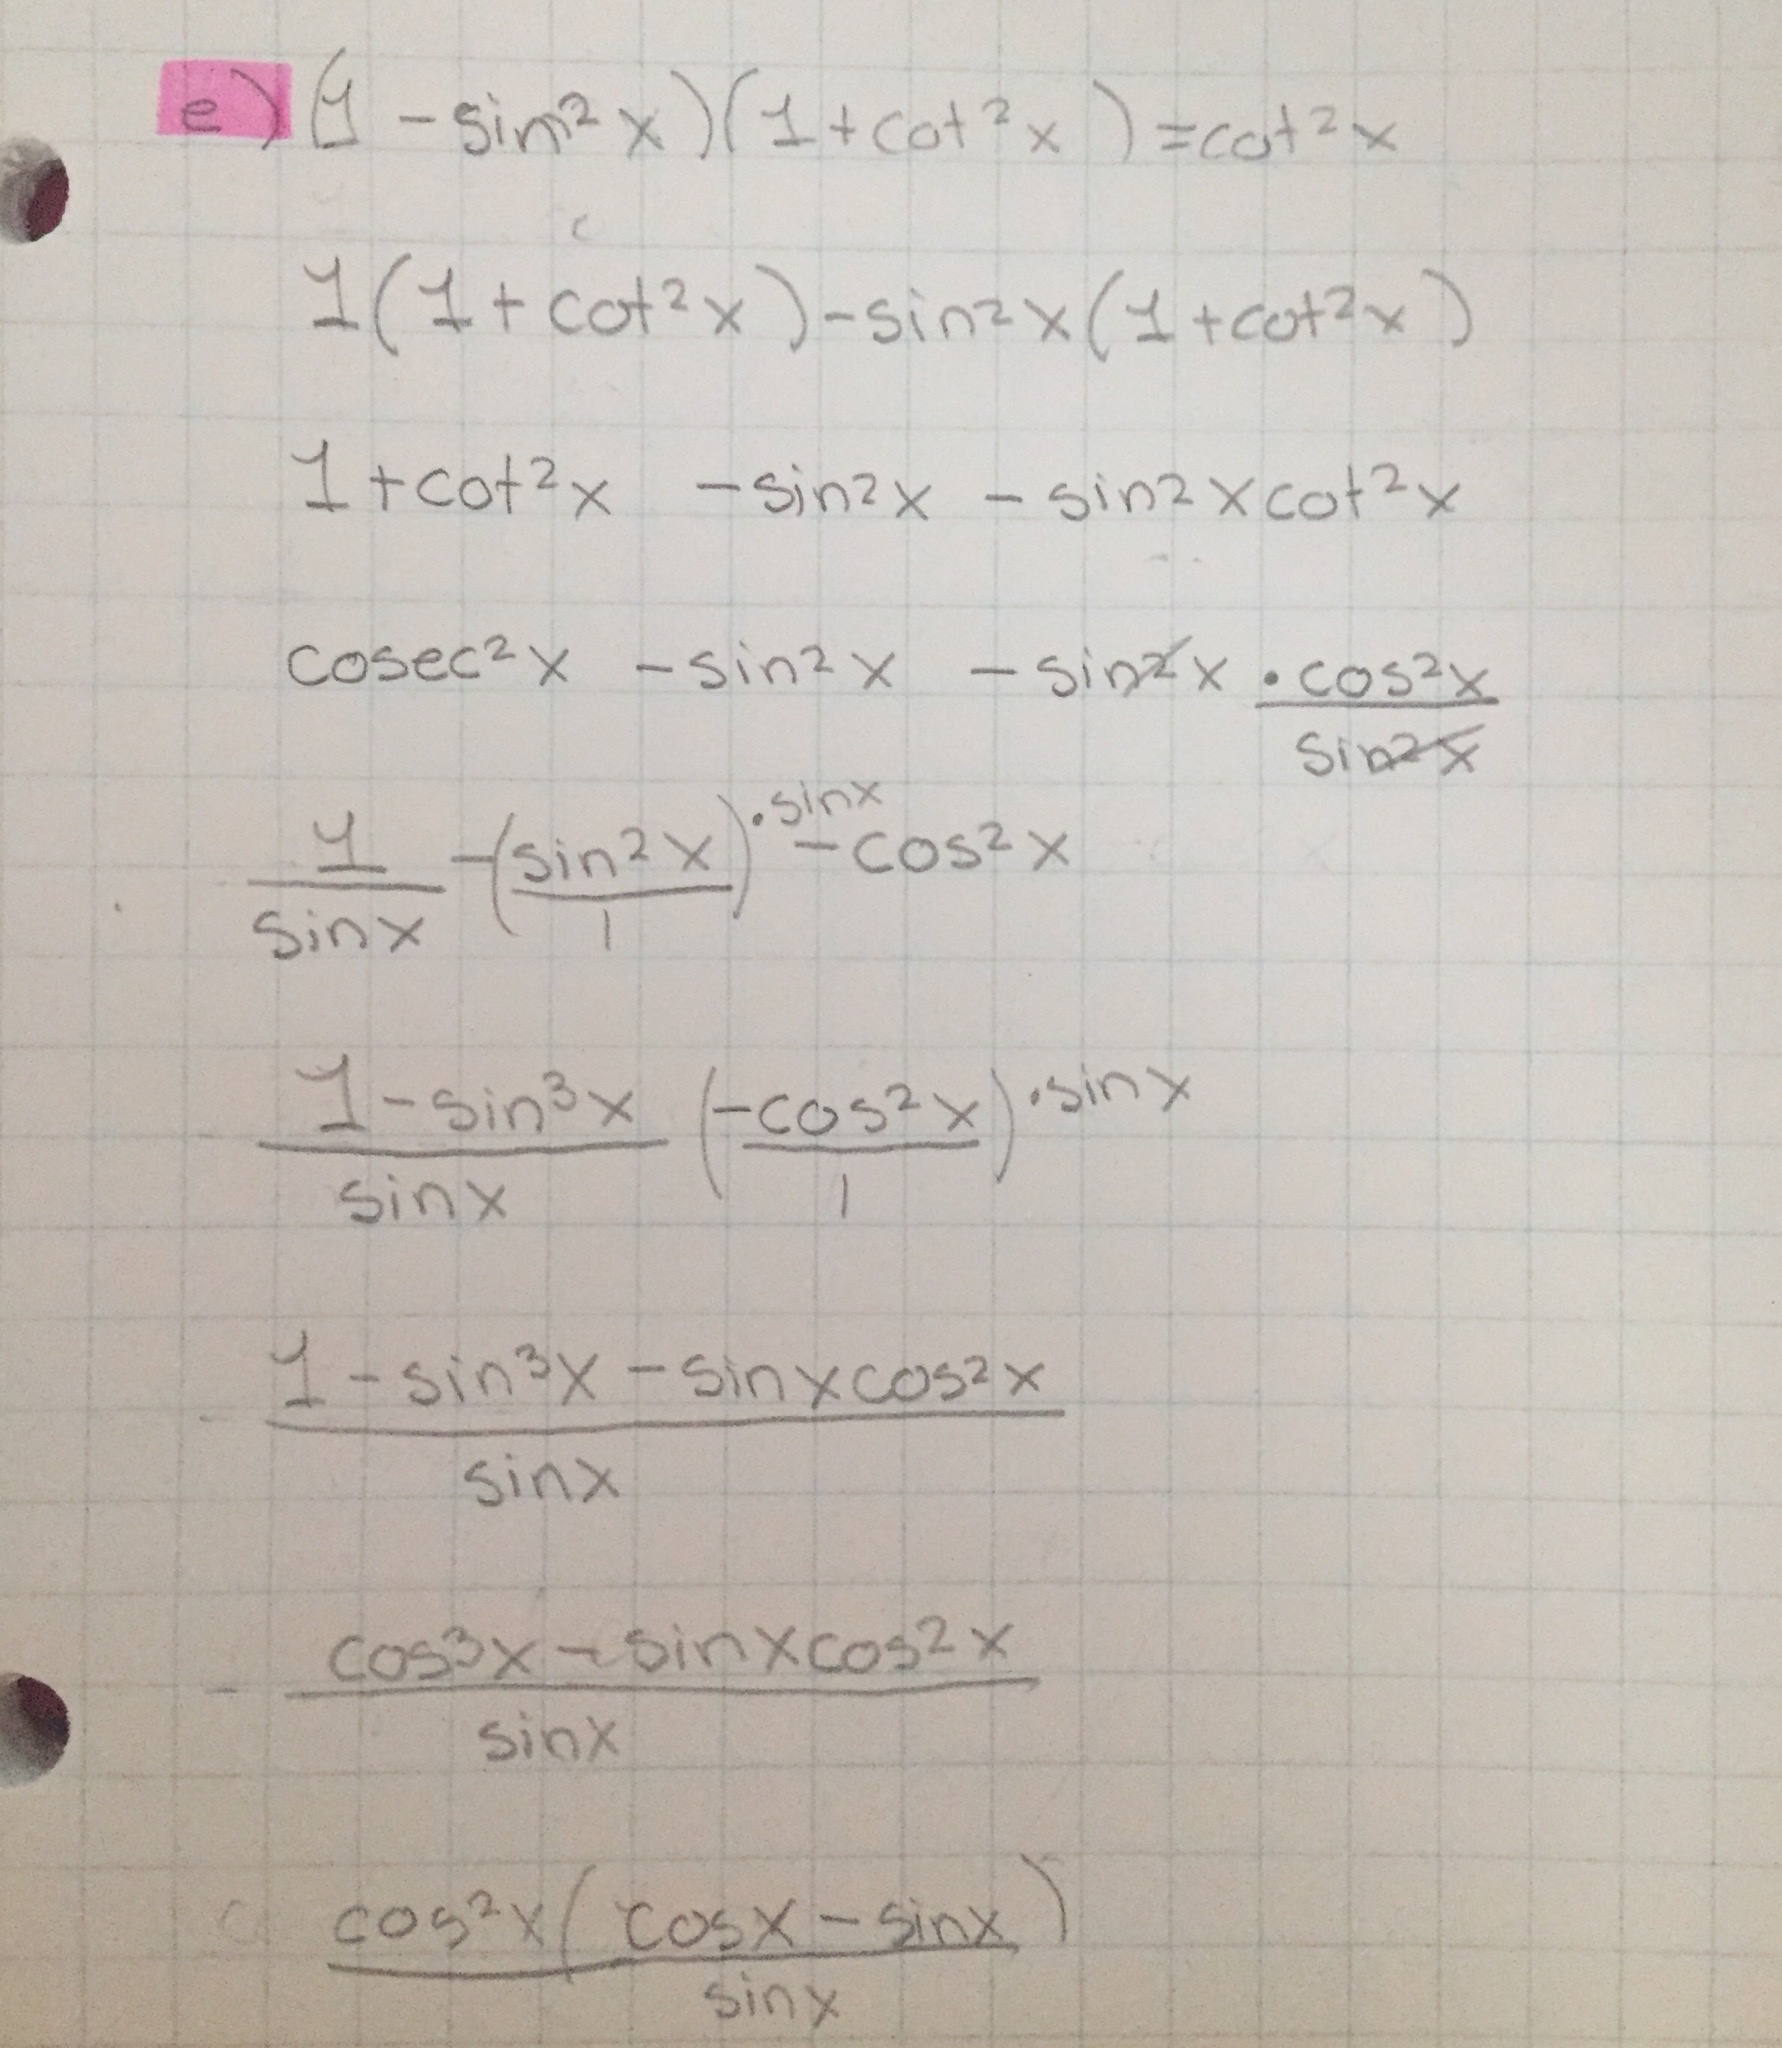 e) (1 - sin²x)(1 + cot²x) = cot²x
1(1 + cot²x) - sin²x(1 + cot²x)
1 + cot²x - sin²x - sin²x cot²x
cosec²x - sin²x - sin²x · cos²x
sin²x
1 - (sin²x) · sinx - cos²x
sinx 1
1 - sin³x (-cos²x) · sinx
sinx 1
1 - sin³x - sinxcos²x
sinx
cos³x - sinxcos²x
sinx
cos²x(cosx - sinx)
sinx